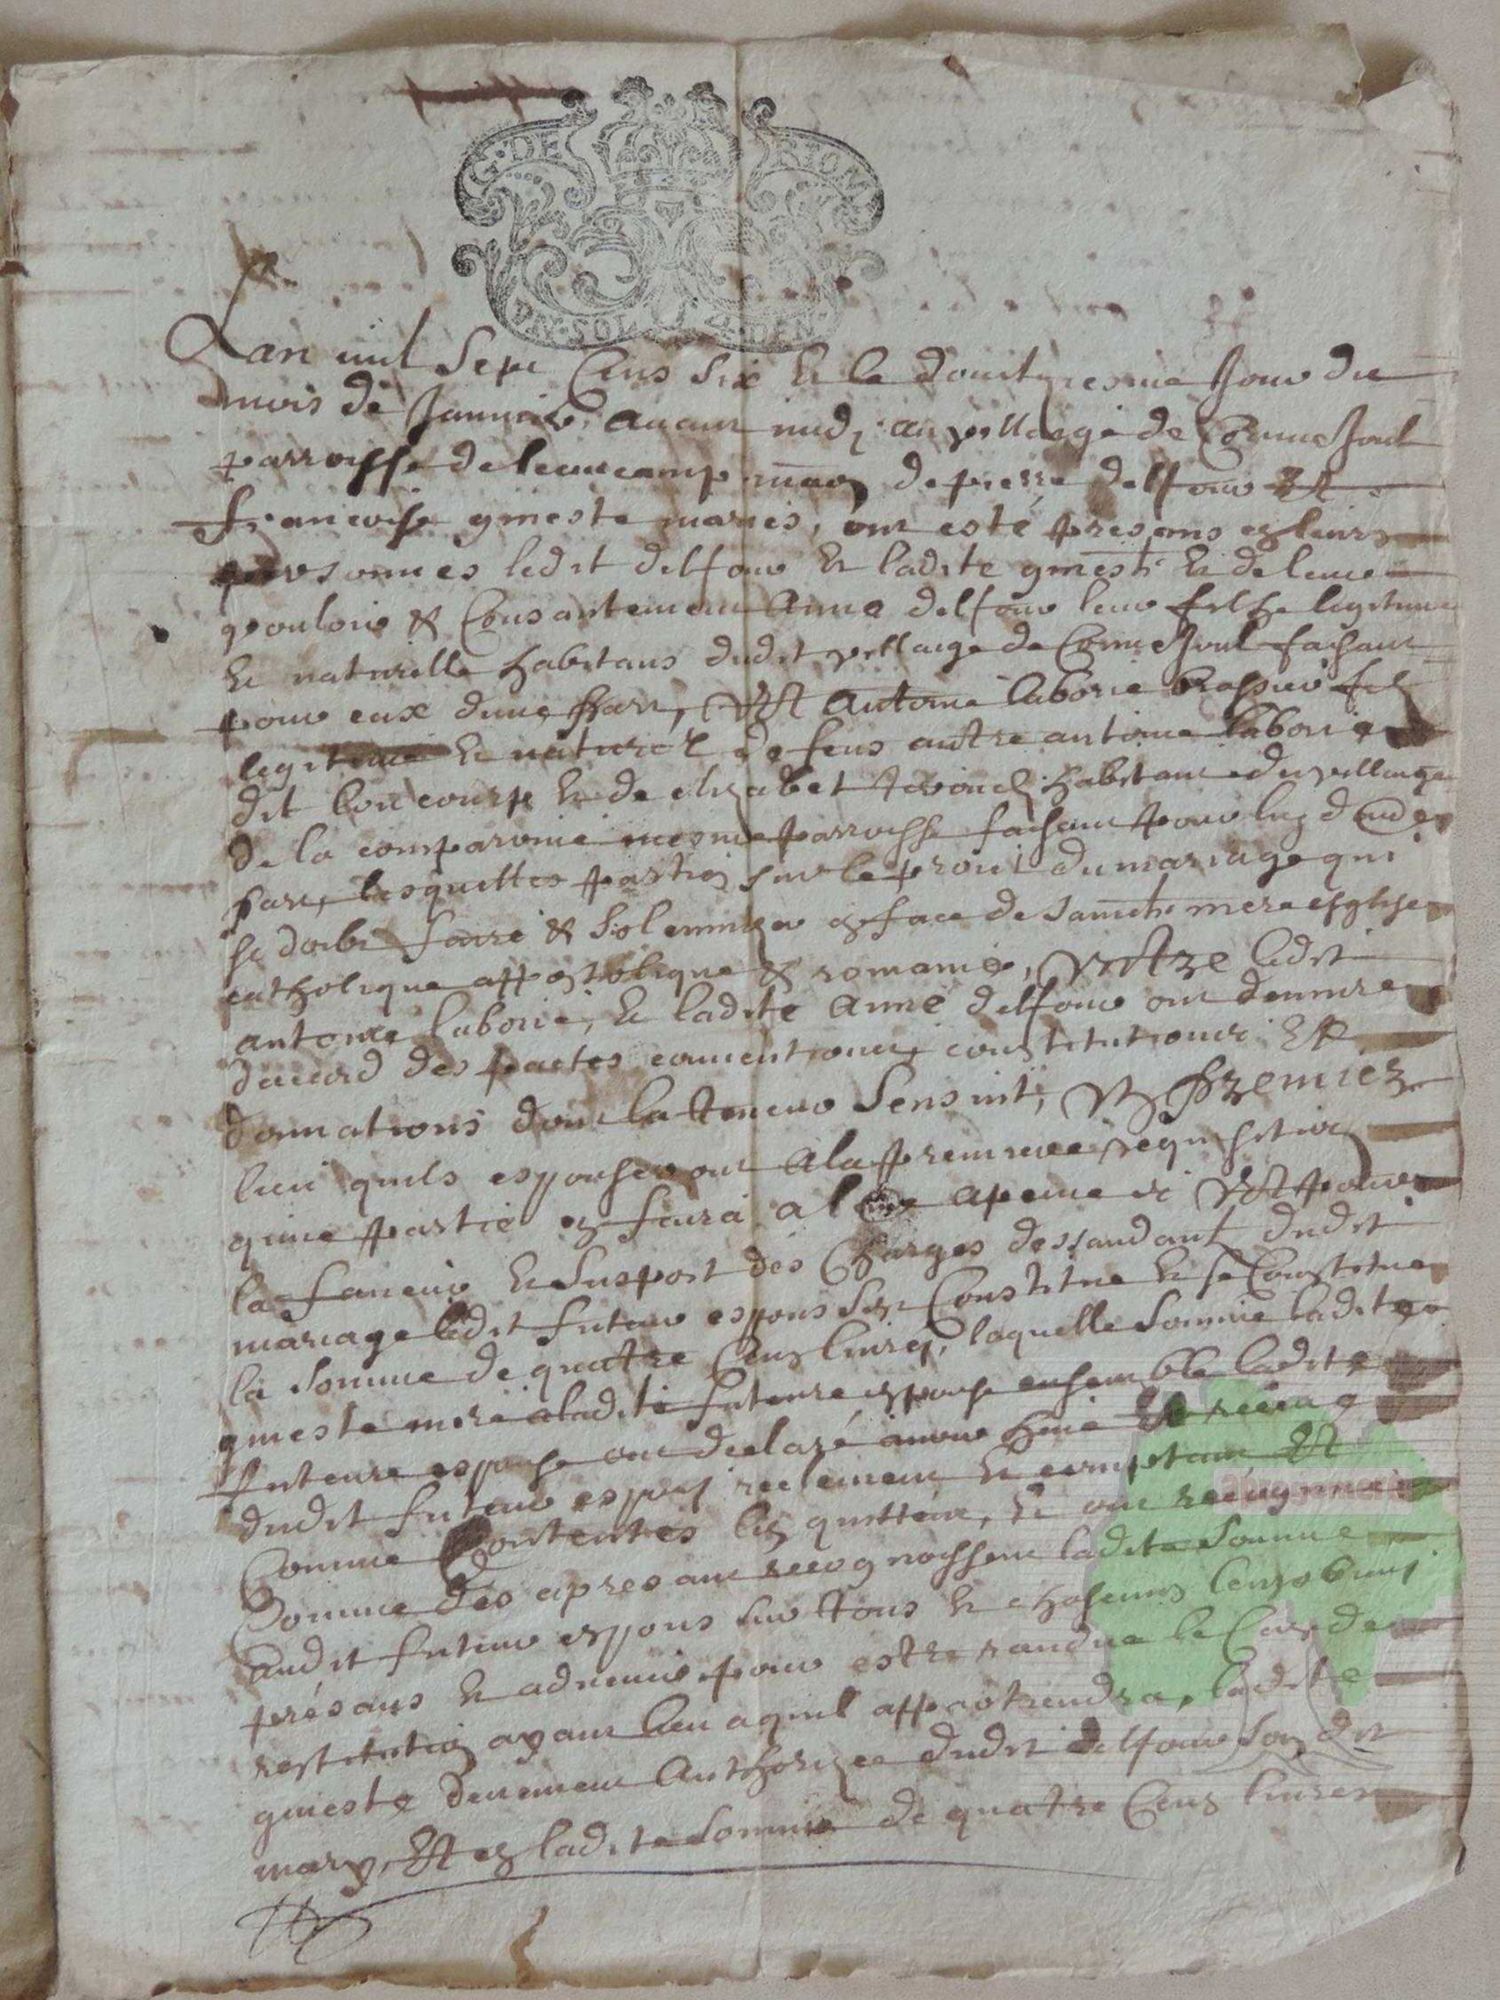 G. DE RIOM
PAP. SOL. 4 DEN.
Lan mil Sept Cens Six & le douitziesme Jour du
mois de Janvier, avant midy au village de
parroisse de leucamp maison de pierre delfour Et
francoise gineste maries, ont esté presans en leurs
personnes ledit delfour & ladite gineste & de leur
vouloir & Consantement Anne delfour leur filhe legitime
& naturelle habitans dudit village de faisant
pour eux dune part, Et Antoine laborie fils
legitime & naturel de feus autre antoine laborie
dit & de elizabet habitant du village
de la mesme parroisse faisant pour luy dautre
part, lesquelles parties sur le proit du mariage qui
se doibt faire & Solemnizer en face de saincte mere esglise
catholique appostolique & romaine, Entre ledit
antoine laborie, & ladite Anne delfour ont demure
dacord des pactes conventions constitutions Et
donnations dont la teneur Sensuit, En premier
lieu quils espouseront A la premiere requisition
quune partie en faira a l apeine & Et pour
la faveur & Suport des Charges dessandant dudit
mariage ledit futeur espous Sest Constitue & se Constitue
la Somme de quatre Cens livres, laquelle Somme ladite
gineste mere a ladite future espouse ensemble ladite
future espouse ont declaré avoir heue Et receue
dudit futeur espous reelement & comptant Et
Comme Contentes len quittent, & ont recogneu
Comme des apres ant recognoissent ladite Somme
audit futeur espous sur tous & chascuns leurs biens
présans & advenir pour estre randue le Cas de
restitution ayant lieu a quil appartiendra, ladite
gineste deuement Authorizee dudit delfour Son dit
mary, Et en ladite Somme de quatre Cens livres